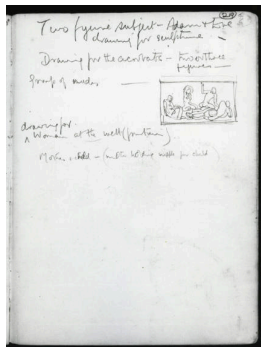 Two figure subject - Adam & Eve
drawing for sculpture
Drawing for the acrobats - two or three
figures
Group of nudes
drawing for
Woman at the well (fountain)
Mother & child - (mother holding for child